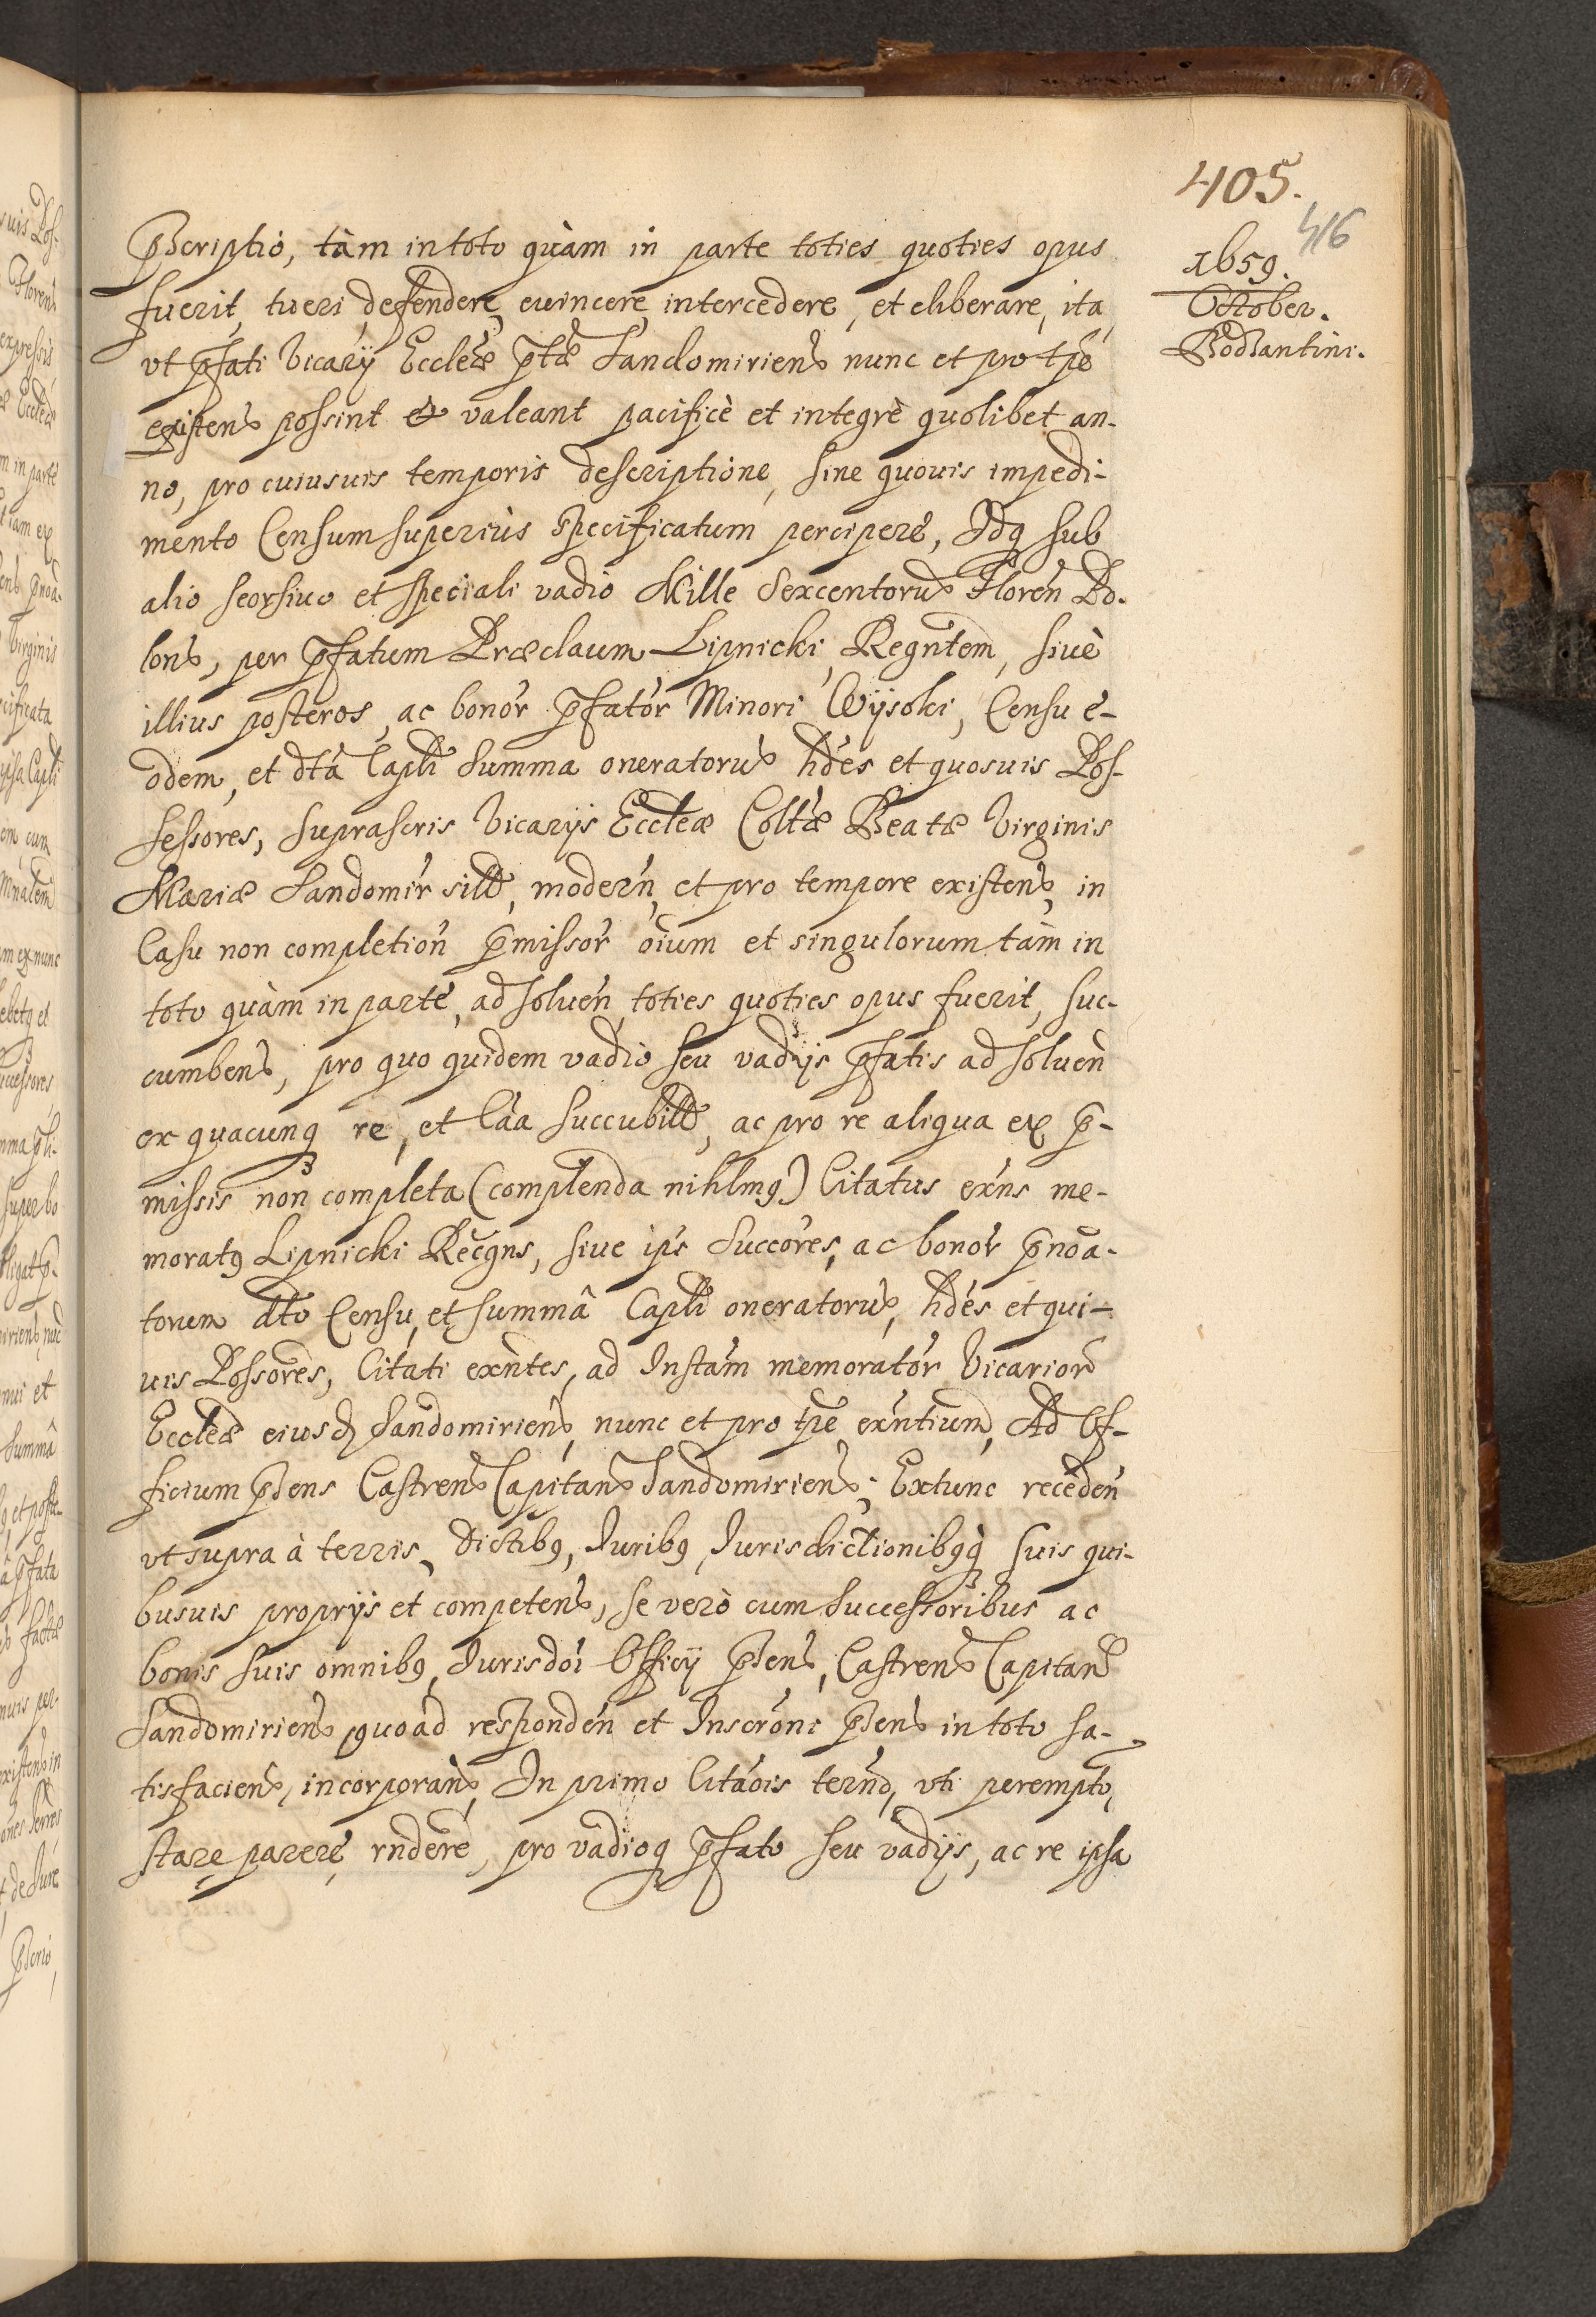 405.
416
1659.
October.
Bodzantini.
Pscriptio, tàm in toto quàm in parte toties quoties opus
fuerit, tueri, defendere, euincere, intercedere, et eliberare, ita
vt pfati Vicarÿ Eccleæ ptæ Sandomiriens nunc et pro tpe
existens possint & valeant pacificè et integrè quolibet an-
no, pro cuiusuis temporis descriptione, sine quouis impedi-
mento Censum superiùs specificatum percipere, Idq sub
alio seorsiuo et speciali vadio Mille Sexcentorū Floren Po-
lons, per pfatum Præclarum Lipnicki, Regntem, siuè
illius posteros, ac bonor pfator Minori Wÿsoki, Censu e-
odem, et dtâ Capli Summa oneratorū hdes et quosuis Pos-
sessores, suprascris Vicarijs Eccleæ Coltæ Beatæ Virginis
Mariæ Sandomir sill, modern, et pro tempore existens, in
Casu non completion pmissor oium et singulorum tàm in
toto quàm in parte, ad soluen toties quoties opus fuerit, suc-
cumbens, pro quo quidem vadio seu vadijs pfatis ad soluen
ex quacunq re, et Caa succubill, ac pro re aliqua ex p-
missis non completa (complenda nihlmq) Citatus exns me-
moratq Lipnicki Recgns, siue ips Succores, ac bonor pnoa-
torum dto Censu, et summâ Capli oneratorū, hdes et qui-
uis Possores, Citati exntes, ad Instam memorator Vicarior
Eccleæ eiusd Sandomiriens, nunc et pro tpe exntium, Ad Of-
ficium psens Castrens Capitans Sandomiriens; Extunc receden
vt supra à terris, Distibq, Juribq Jurisdictionibqq suis qui-
busuis proprijs et competens, se verò cum Successoribus ac
bonis suis omnibq, Jurisdoi Officÿ psens, Castrens Capitans
Sandomiriens quoad responden et Inscroni psens in toto sa-
tisfaciens, incorporans, In primo Citaois termo, vti perempto,
stare parere, rndere, pro vadioq pfato seu vadijs, ac re ipsa